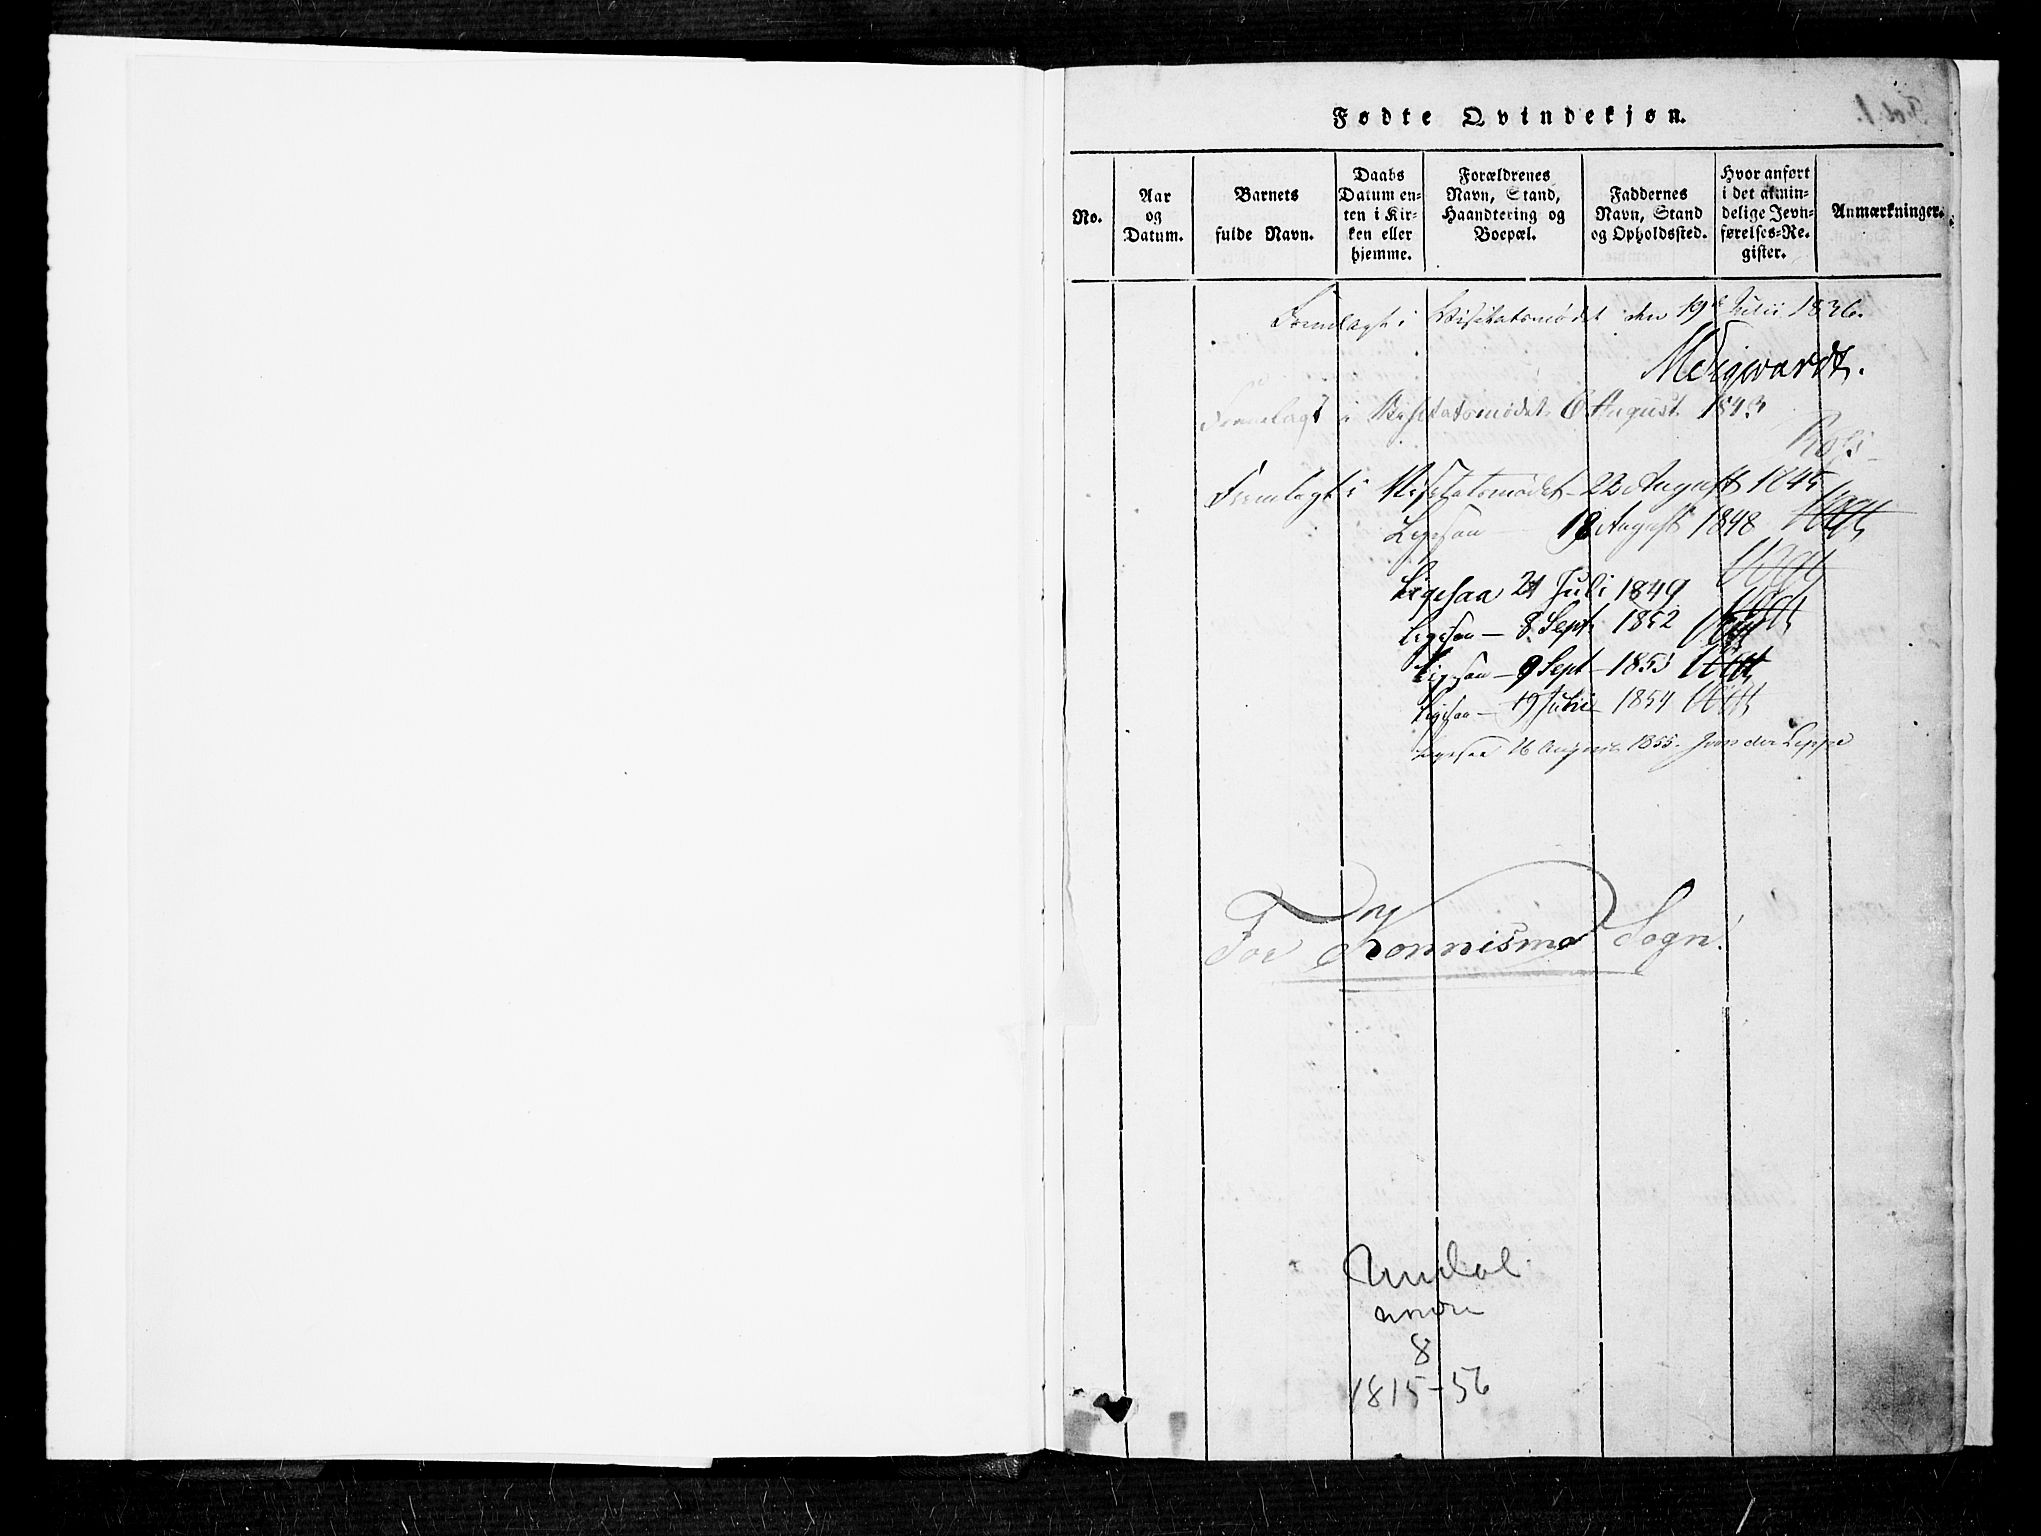 Fødte Qvindekjøn.
No.
Aar
og
Datum.
Barnets
fulde Navn.
Daabs
Datum en-
ten i Kir-
ken eller
hjemme.
Forældrenes
Navn, Stand,
Haandtering og
Boepæl.
Faddernes
Navn, Stand
og Opholdssted.
Hvor anført
i det almin-
delige Jevn-
førelses-Re-
gister.
Anmærkninger.
Fremlagt i Visitatsmødet den 19de Julii 1836.
Fremlagt i Visitatsmødet 6 August 1843
Fremlagt i Visitatsmødet 22 August 1845
Ligesaa 18 August 1848
Ligesaa 21 Juli 1849
Ligesaa – 8 Sept. 1852
Ligesaa – 9 Sept – 1853
Ligesaa – 19 Julii 1854
Ligesaa 16 August 1855. J von der Lippe
For Konnismo Sogn.
Audal
nordre
8
1815-56